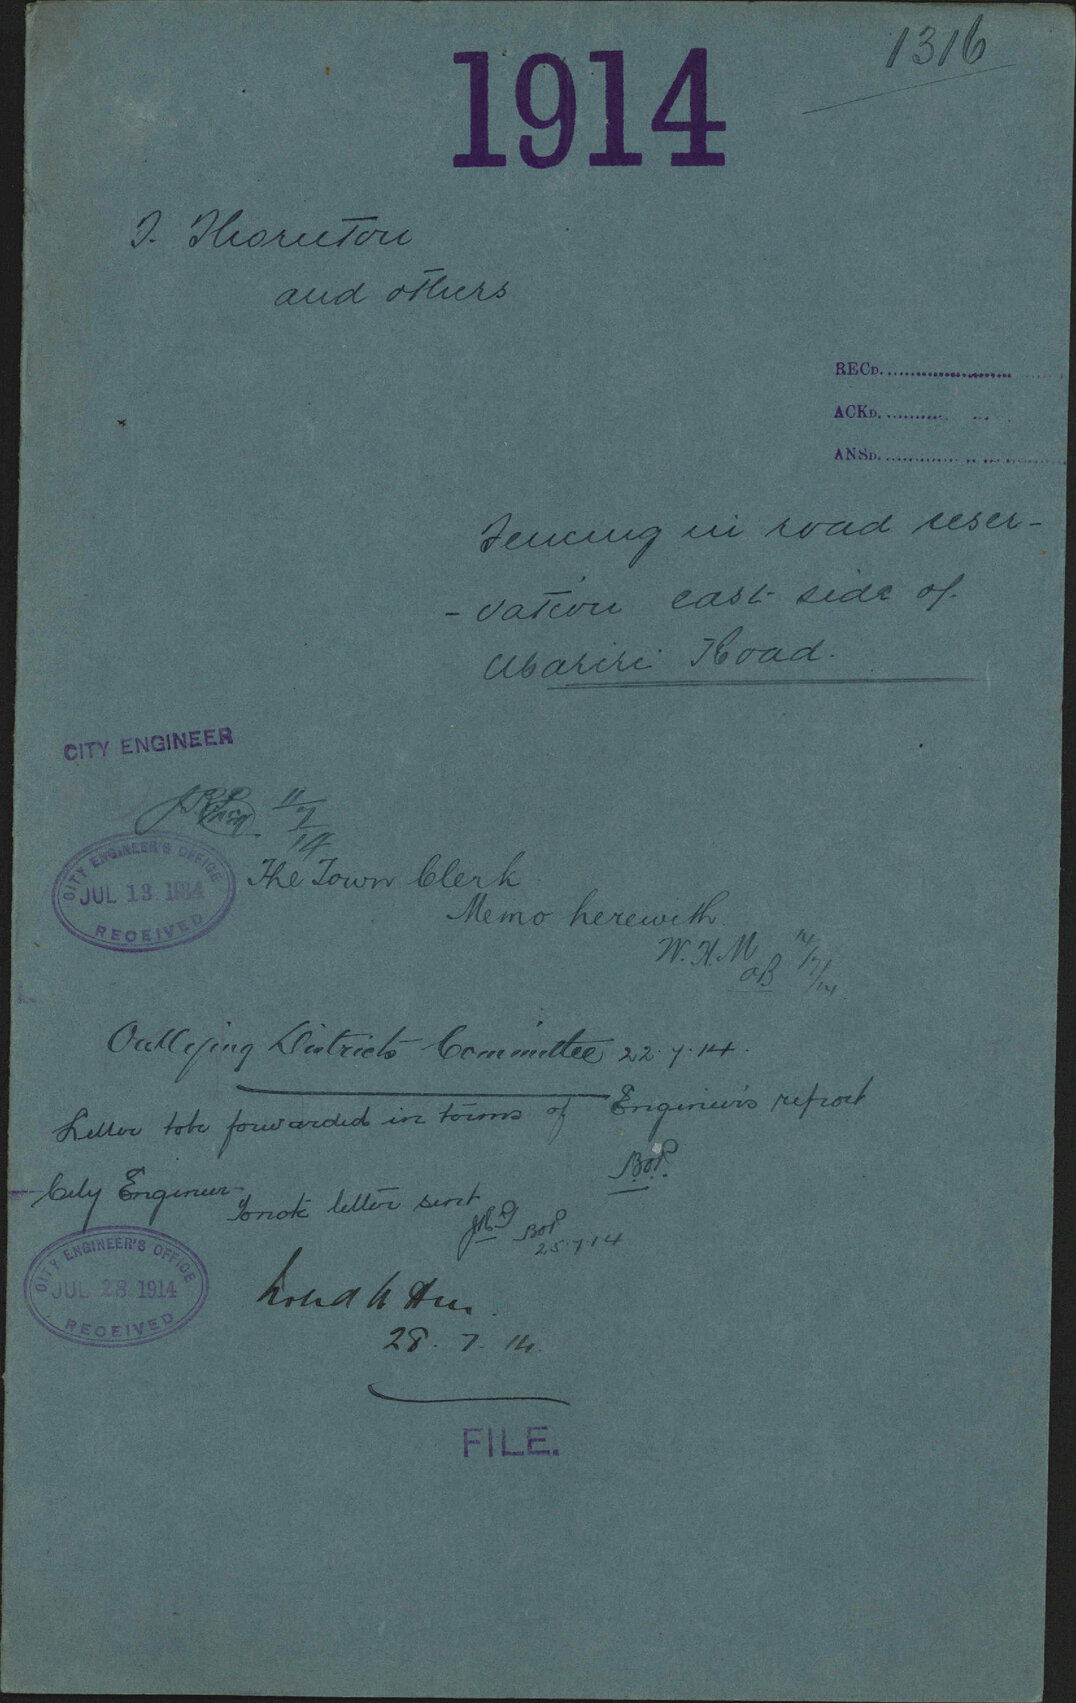 1316
1914
T. Thornton
and others
RECD.
ACKD.
ANSD.
Fencing in road reser-
- vation east side of
Road.
CITY ENGINEER
11/7/14
CITY ENGINEER'S OFFICE
JUL 13 1914
RECEIVED
The Town Clerk
Memo herewith
W.H.M
14/7/14
Outlying Districts Committee 22.7.14.
Letter to be forwarded in terms of Engineer's report
City Engineer
To note letter sent
25.7.14
CITY ENGINEER'S OFFICE
JUL 28 1914
RECEIVED
28.7.14
FILE.